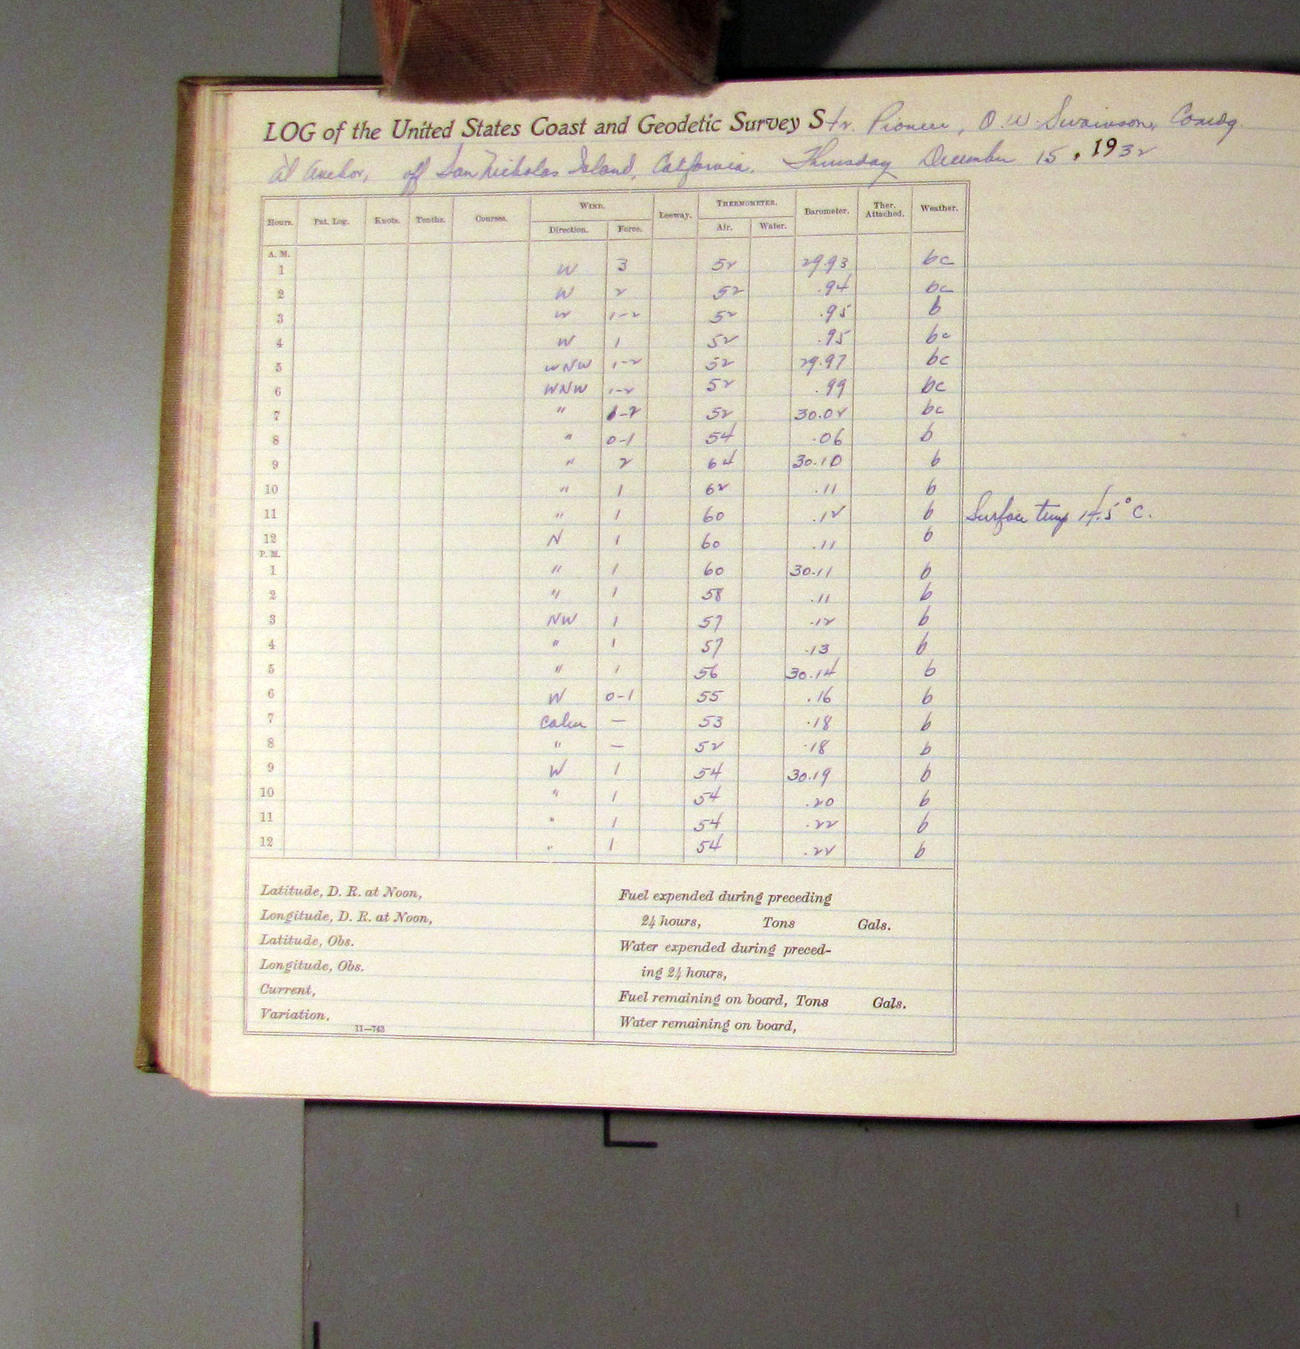 LOG of the United States Coast and Geodetic Survey Str. Pioneer, O.W. Swainson, Comdg.
At Anchor, off San Nicholas Island, California. Thursday December 15, 1932
Hours. Pat. Log. Knots. Tenths. Courses. WIND. Leeway. THERMOMETER. Barometer. Ther. Attached. Weather.
Direction. Force. Air. Water.
A. M.
1 W 3 52 29.93 bc
2 W 2 52 .94 bc
3 W 1-2 52 .95 b
4 W 1 52 .95 bc
5 WNW 1-2 52 29.97 bc
6 WNW 1-2 52 .99 bc
7 " 1-2 52 30.02 bc
8 " 0-1 54 .06 b
9 " 2 64 30.10 b
10 " 1 62 .11 b
11 " 1 60 .12 b Surface temp 14.5°C.
12 N 1 60 .11 b
P. M.
1 " 1 60 30.11 b
2 " 1 58 .11 b
3 NW 1 57 .12 b
4 " 1 57 .13 b
5 " 1 56 30.14 b
6 W 0-1 55 .16 b
7 Calm — 53 .18 b
8 " — 52 .18 b
9 W 1 54 30.19 b
10 " 1 54 .20 b
11 " 1 54 .22 b
12 " 1 54 .22 b
Latitude, D. R. at Noon,
Longitude, D. R. at Noon,
Latitude, Obs.
Longitude, Obs.
Current,
Variation,
11—743
Fuel expended during preceding
24 hours, Tons Gals.
Water expended during preced-
ing 24 hours,
Fuel remaining on board, Tons Gals.
Water remaining on board,